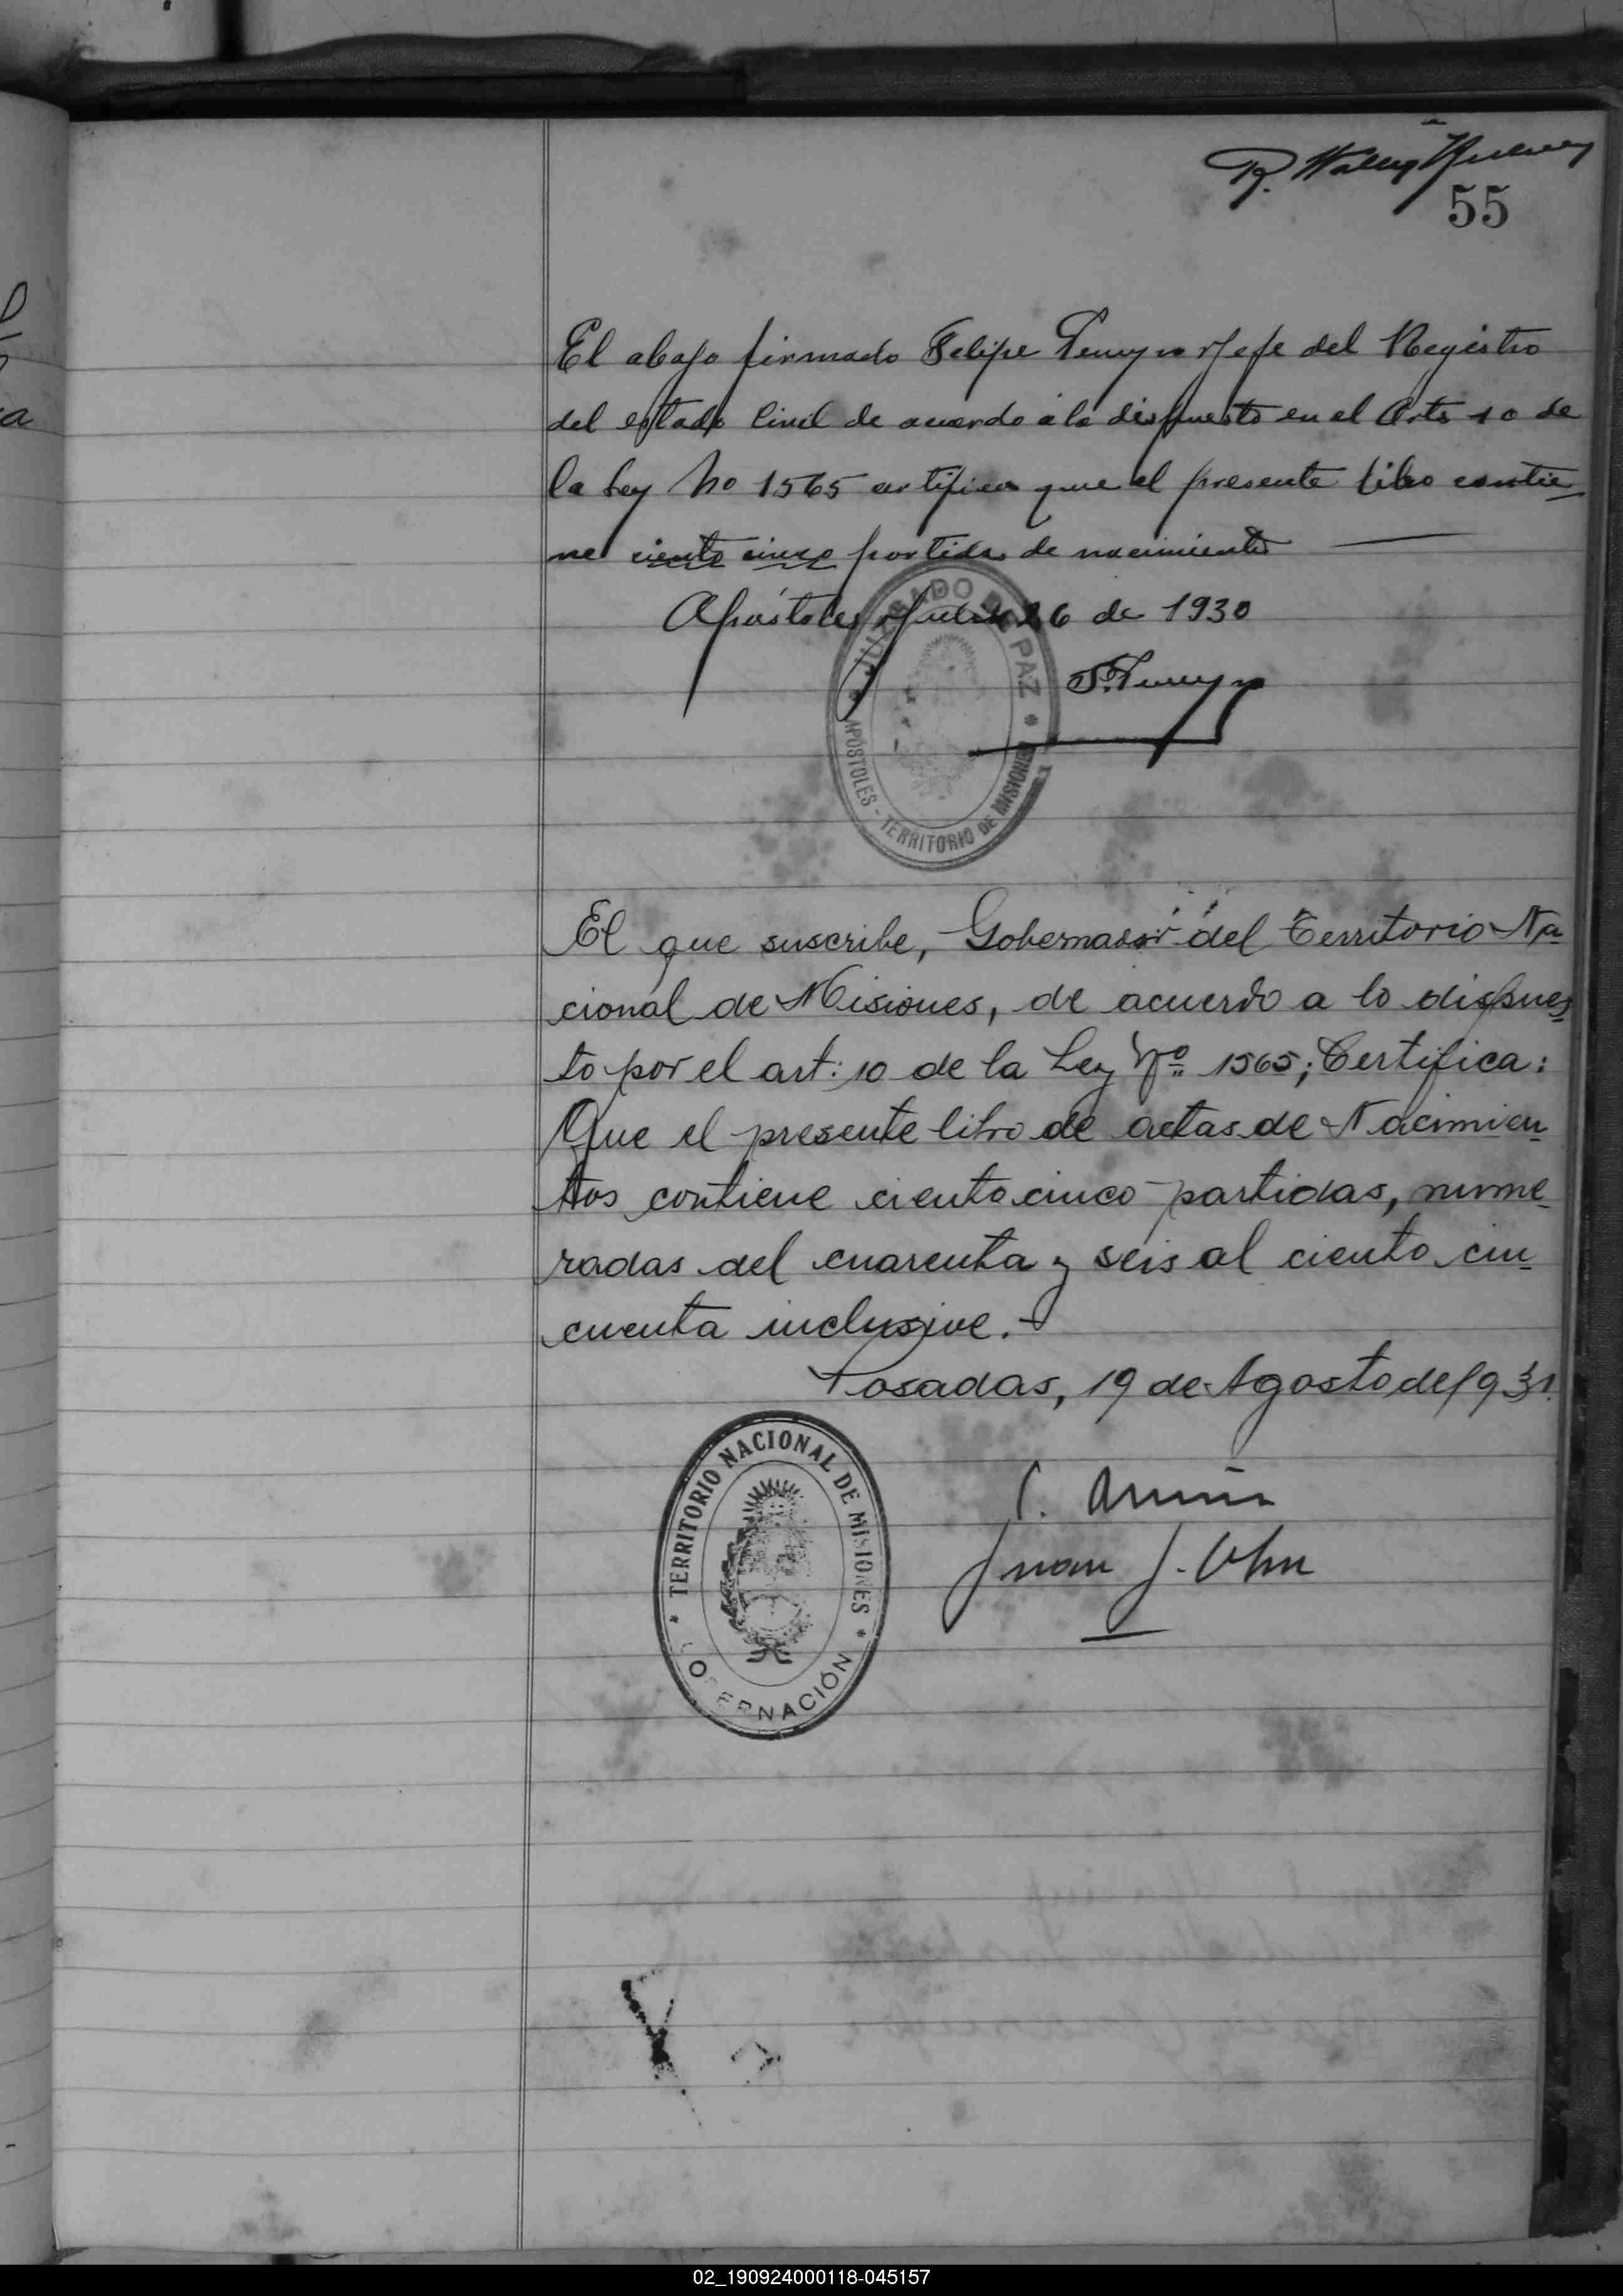 55
El abajo firmado Felipe Jefe del Registro
del estado Civil de acuerdo á lo dispuesto en el Arto 10 de
la Ley No 1565 certifica que el presente libro contie-
ne ciento cinco partidas de nacimiento
Apóstoles Julio 26 de 1930
JUZGADO DE PAZ
APÓSTOLES - TERRITORIO DE MISIONES
El que suscribe, Gobernador del Territorio Na-
cional de Misiones, de acuerdo a lo dispues-
to por el art: 10 de la Ley Nº 1565; Certifica:
Que el presente libro de actas de Nacimien-
tos contiene ciento cinco partidas, nume-
radas del cuarenta y seis al ciento cin-
cuenta inclusive.-
Posadas, 19 de Agosto de 1931.
TERRITORIO NACIONAL DE MISIONES
GOBERNACIÓN
Juan J.
02_190924000118-045157